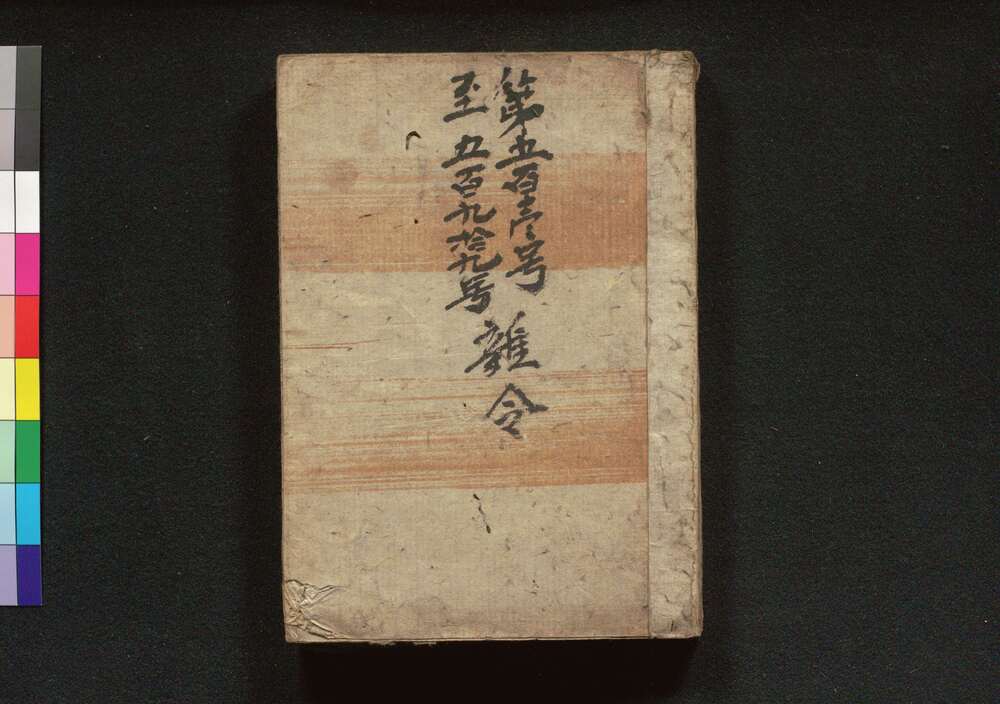 第五百壱号
至五百九拾九号
雑令